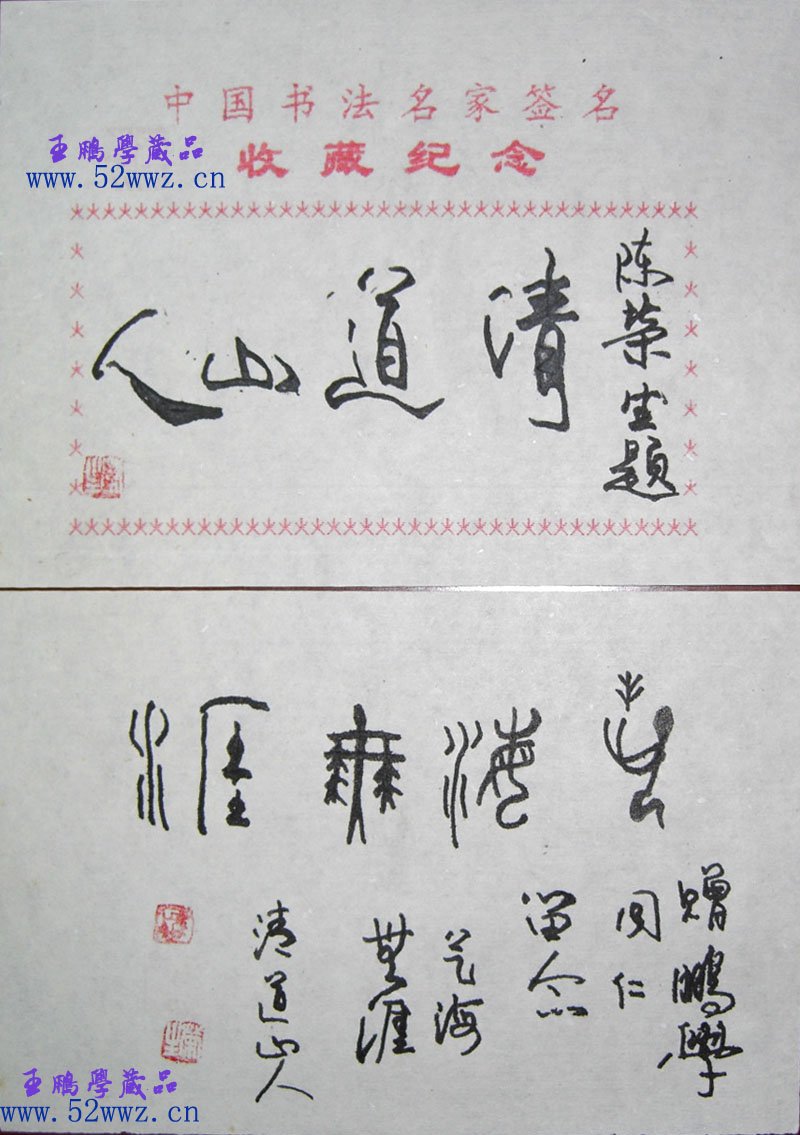 中国书法名家签名
收藏纪念
王鵬學藏品
www.52wwz.cn
陈荣 題
清道山人
藝海無涯
赠鵬學
同仁
留念
艺海
無涯
清道山人
王鵬學藏品
www.52wwz.cn